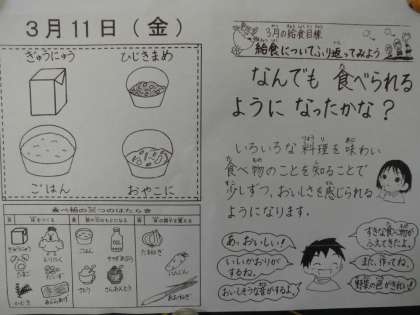 3月11日(金)
ぎゅうにゅう ひじきまめ
ごはん おやこに
食べ物の三つのはたらき
ぎゅうにゅう
とりにく
たまご
ひじき
ごはん
さとう
たまねぎ
にんじん
3月の給食目標
給食についてふり返ってみよう
なんでも食べられる
ようになったかな?
いろいろな料理を味わい
食べ物のことを知ることで
少しずつ、おいしさを感じられる
ようになります。
あ、おいしい!
いいかおりが
するね。
おいしそうな音がするよ。
すきな食べ物が
ふえてきたよ。
また、作ってね。
野菜の色がきれい!